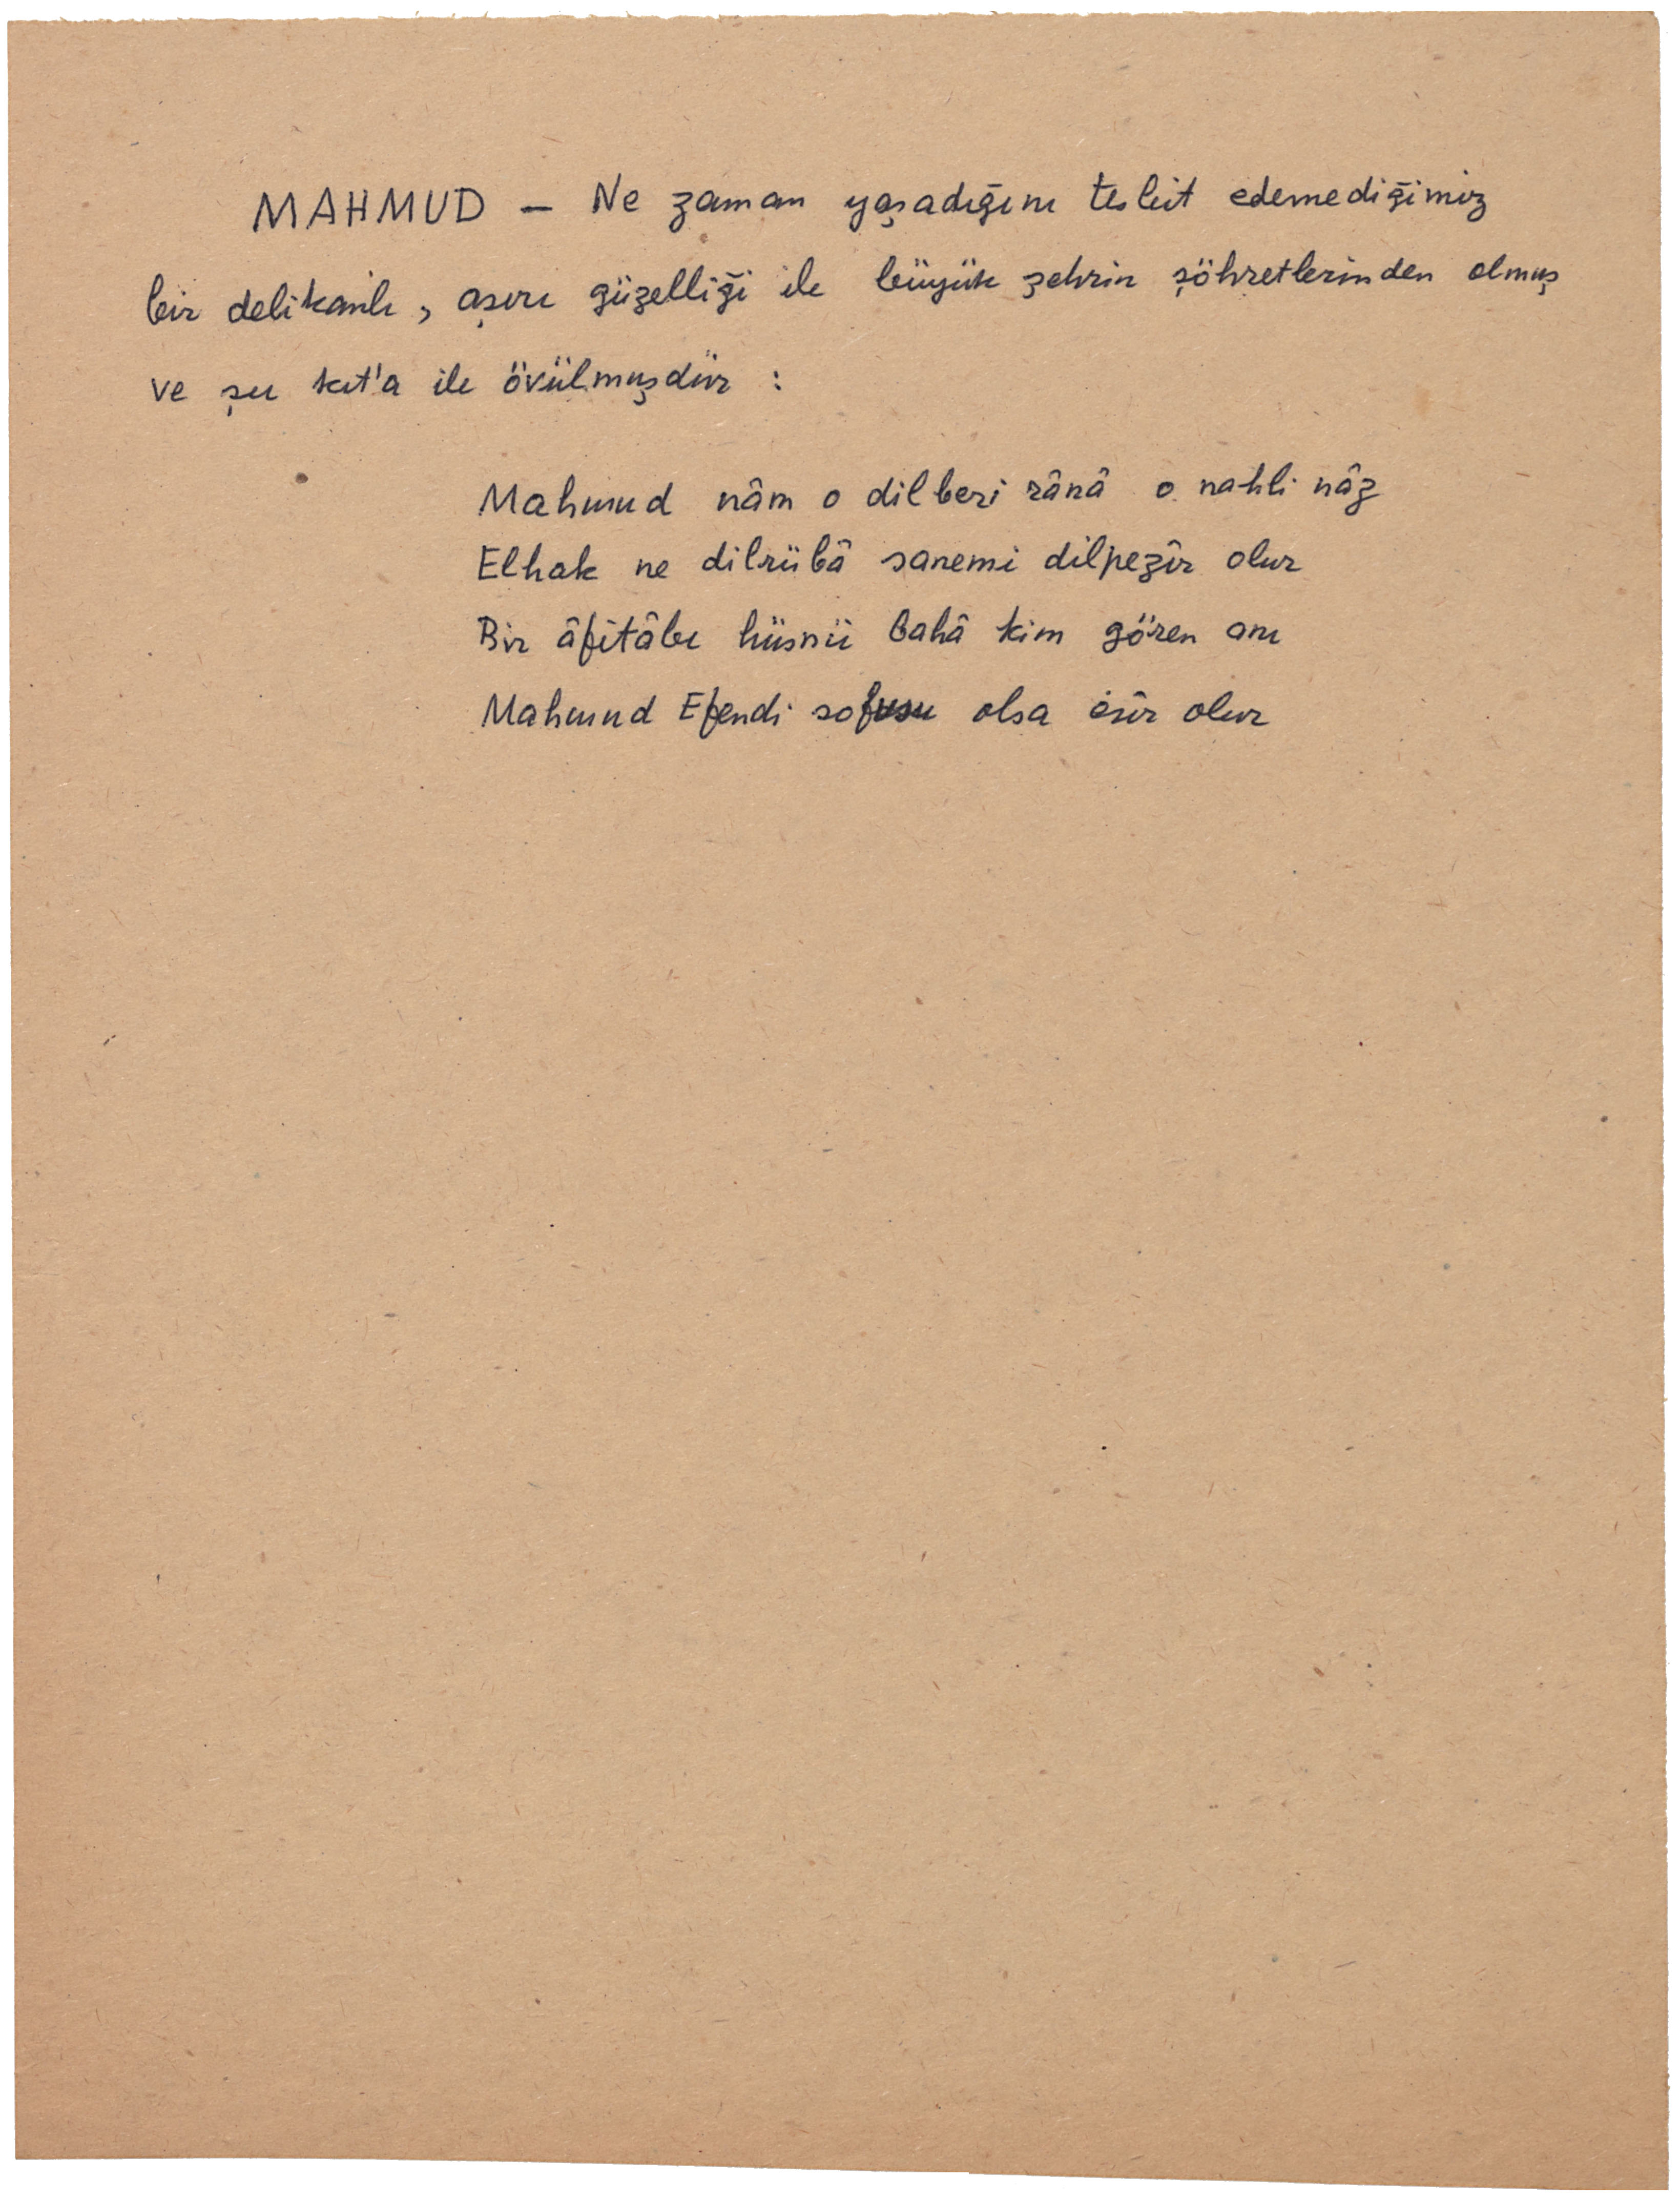 MAHMUD — Ne zaman yaşadığını tesbit edemediğimiz
bir delikanlı, aşırı güzelliği ile büyük şehrin şöhretlerinden olmuş
ve şu kıt'a ile övülmüşdür :
Mahmud nâm o dilberi rânâ o nahli nâz
Elhak ne dilrübâ sanemi dilpezîr olur
Bir âfitâbı hüsnü bahâ kim gören anı
Mahmud Efendi sofusu olsa esîr olur